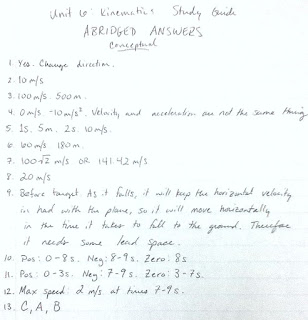 Unit 6: Kinematics Study Guide
ABRIDGED ANSWERS
Conceptual
1. Yes. Change direction.
2. 10 m/s
3. 100 m/s. 500 m.
4. 0 m/s. -10 m/s². Velocity and acceleration are not the same thing
5. 1s. 5m. 2s. 10 m/s.
6. 60 m/s 180 m.
7. 100√2 m/s OR 141.42 m/s
8. 20 m/s
9. Before target. As it falls, it will keep the horizontal velocity
it had with the plane, so it will move horizontally
in the time it takes to fall to the ground. Therefore
it needs some lead space.
10. Pos: 0-8s. Neg: 8-9s. Zero: 8s
11. Pos: 0-3s. Neg: 7-9s. Zero: 3-7s.
12. Max speed: 2 m/s at times 7-9s.
13. C, A, B